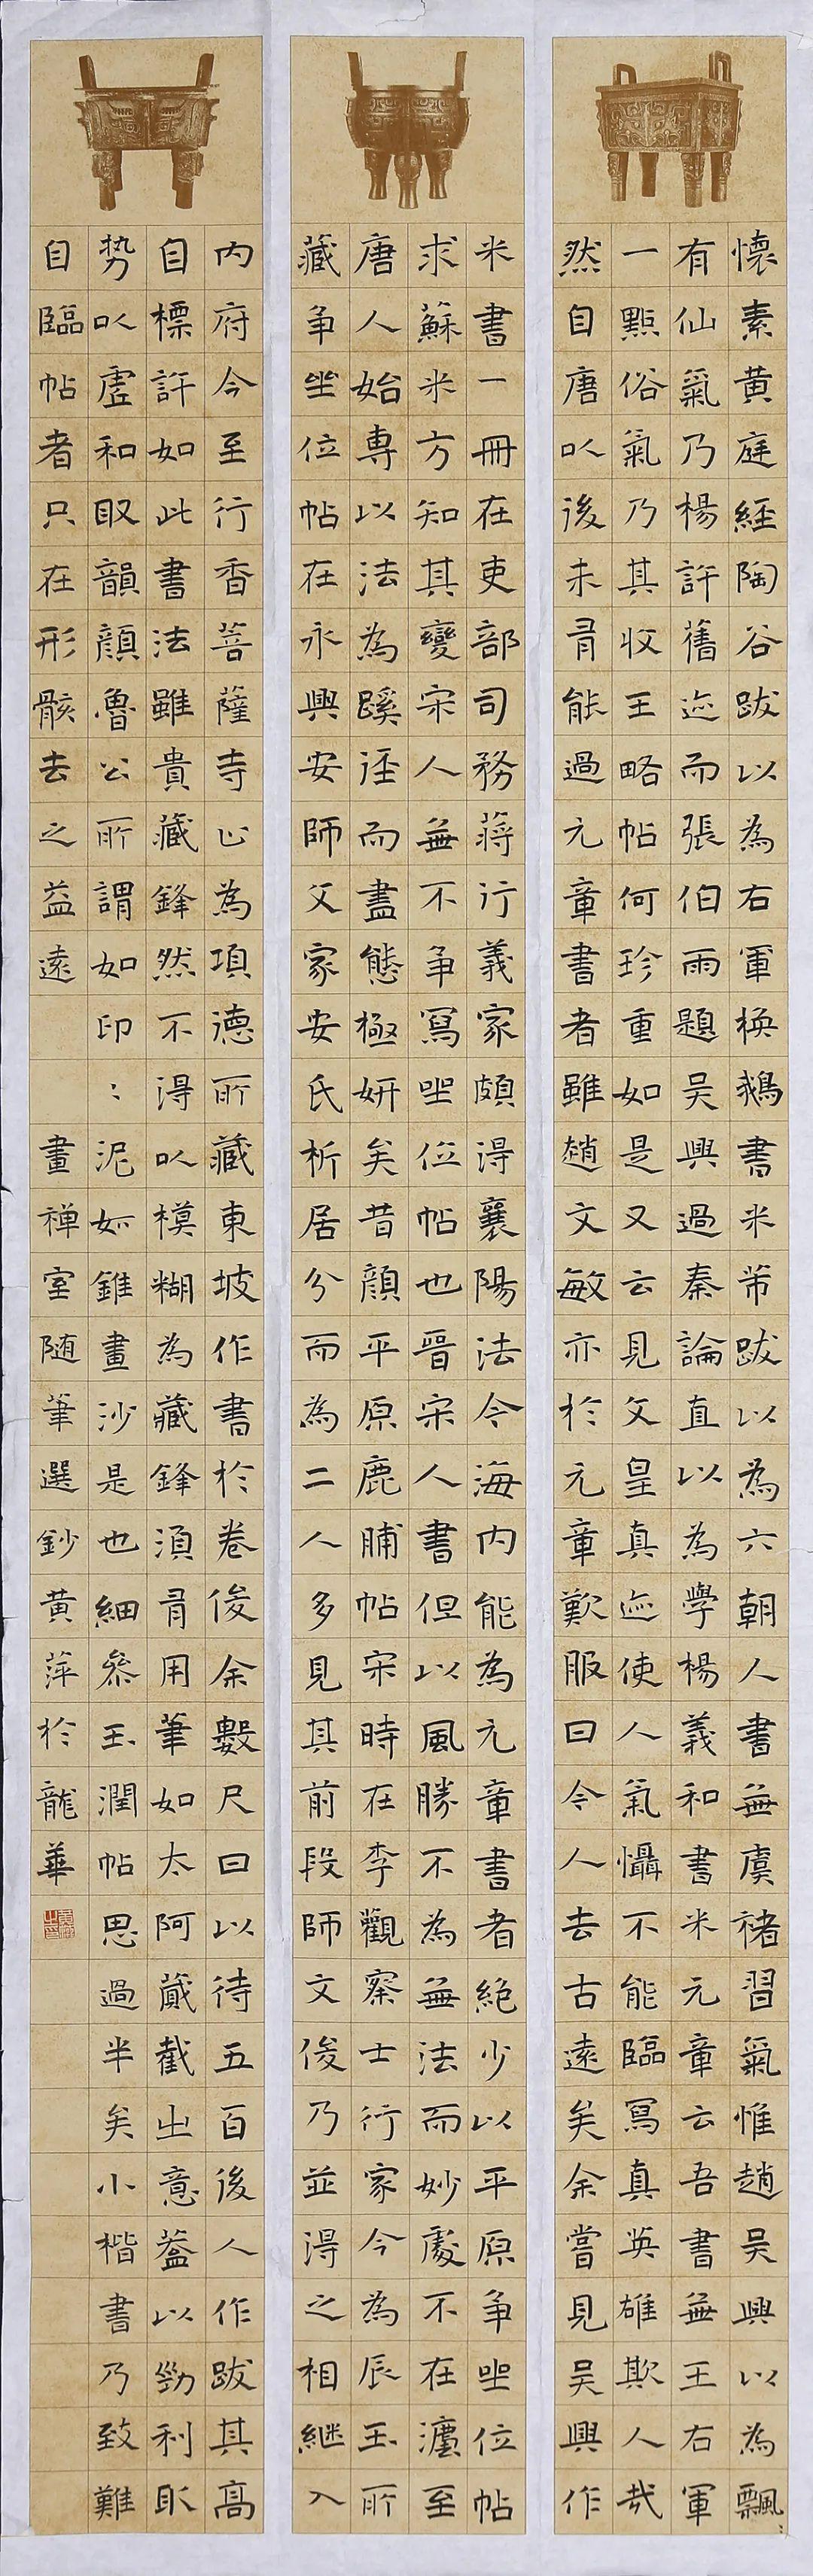 懷素黄庭經陶谷跋以為右軍換鵝書米芾跋以為六朝人書無虞褚習氣惟趙吴興以為飄：
有仙氣乃楊許舊迹而張伯雨題吴興過秦論直以為學楊義和書米元章云吾書無王右軍
一點俗氣乃其收王略帖何珍重如是又云見文皇真迹使人氣懾不能臨寫真英雄欺人哉
然自唐以後未有能過元章書者雖趙文敏亦於元章歎服曰今人去古遠矣余嘗見吴興作
米書一冊在吏部司務蒋行義家頗得襄陽法今海内能為元章書者絶少以平原争坐位帖
求蘇米方知其變宋人無不争寫坐位帖也晉宋人書但以風勝不為無法而妙處不在法至
唐人始專以法為蹊徑而盡態極妍矣昔顔平原鹿脯帖宋時在李觀察士行家今為辰玉所
藏争坐位帖在永興安師文家安氏析居分而為二人多見其前段師文後乃並得之相繼入
内府今至行香菩薩寺止為項德所藏東坡作書於卷後余數尺曰以待五百後人作跋其高
自標許如此書法雖貴藏鋒然不得以模糊為藏鋒須有用筆如太阿截出意蓋以勁利取
勢以虚和取韻顔魯公所謂如印：泥如錐畫沙是也細參玉潤帖思過半矣小楷書乃致難
自臨帖者只在形骸去之益遠 畫禅室随筆選鈔黄萍於龍華